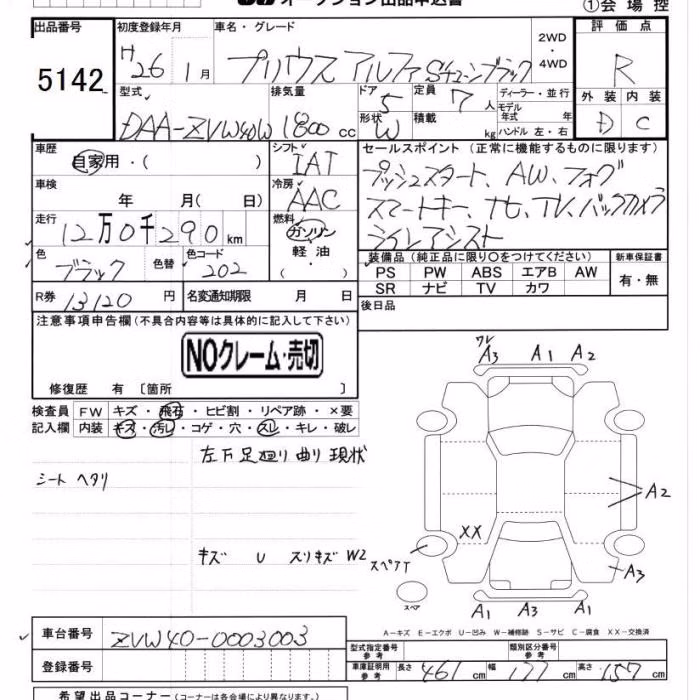 オークション出品申込書
①会場控
出品番号
5142
初度登録年月
H26 1月
車名・グレード
プリウス アルファ Sチューンブラック
2WD
・
4WD
評価点
R
外装 内装
D C
型式
DAA-ZVW40W
排気量
1800 cc
ドア 5
形状 W
定員 7 人
積載 kg
ディーラー・並行
モデル年式 年
ハンドル 左・右
車歴
自家用・( )
シフト
IAT
車検
年 月( 日)
冷房
AAC
走行
12万0千290km
燃料
ガソリン
軽油
・
( )
色
ブラック
色替
色コード
202
R券 13120 円
名変通知期限 月 日
セールスポイント (正常に機能するものに限ります)
プッシュスタート、AW、フォグ
スマートキー、ナビ、TV、バックカメラ
ライン アシスト
装備品 (純正品に限り○をつけてください)
PS PW ABS エアB AW
SR ナビ TV カワ
新車保証書
有・無
後日品
注意事項申告欄 (不具合内容等は具体的に記入して下さい)
NOクレーム・売切
修復歴 有 [箇所 ]
検査員 FW キズ・飛石・ヒビ割・リペア跡・×要
記入欄 内装 キズ・汚レ・コゲ・穴・スレ・キレ・破レ
左下足廻り曲り現状
シート ヘタリ
キズ U スリキズ W2
ワレ
A3 A1 A2
A2
XX
スペアT
A3
スペア
A1 A3 A1
A-キズ E-エクボ U-凹み W-補修跡 S-サビ C-腐食 XX-交換済
車台番号 ZVW40-0003003
登録番号
型式指定番号
参考
類別区分番号
参考
車庫証明用
参考
長さ 461 cm 幅 177 cm 高さ 157 cm
希望出品コーナー (コーナーは各会場により異なります。)